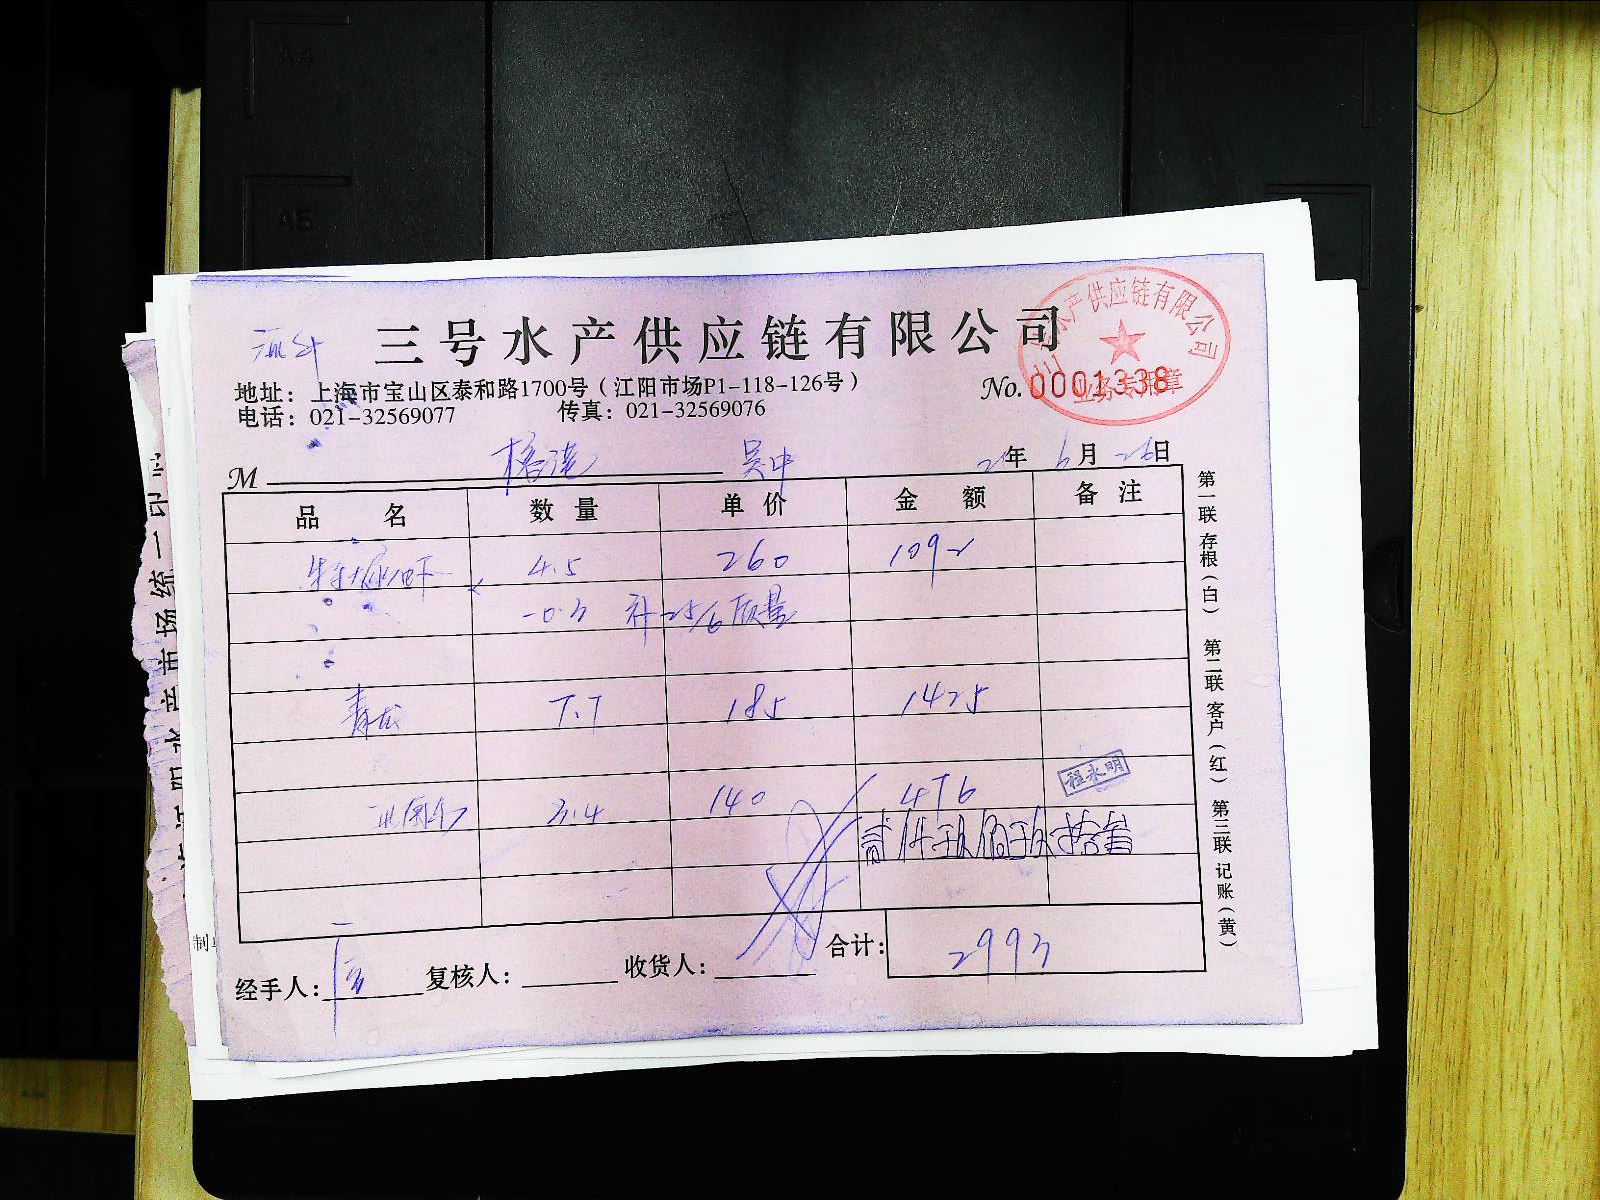 A5
三号水产供应链有限公司
水产供应链有限公司
业务专用章
地址：上海市宝山区泰和路1700号（江阳市场P1-118-126号）
No. 0001338
电话：021-32569077 传真：021-32569076
M 吴中 21年 6月 26日
品名 数量 单价 金额 备注
4.5 260 1092
-0.3 补 25/6 质量
青龙 7.7 185 1425
3.4 140 476
程永明
贰仟玖佰玖拾叁
合计： 2993
经手人： 复核人： 收货人：
第一联 存根（白） 第二联 客户（红） 第三联 记账（黄）